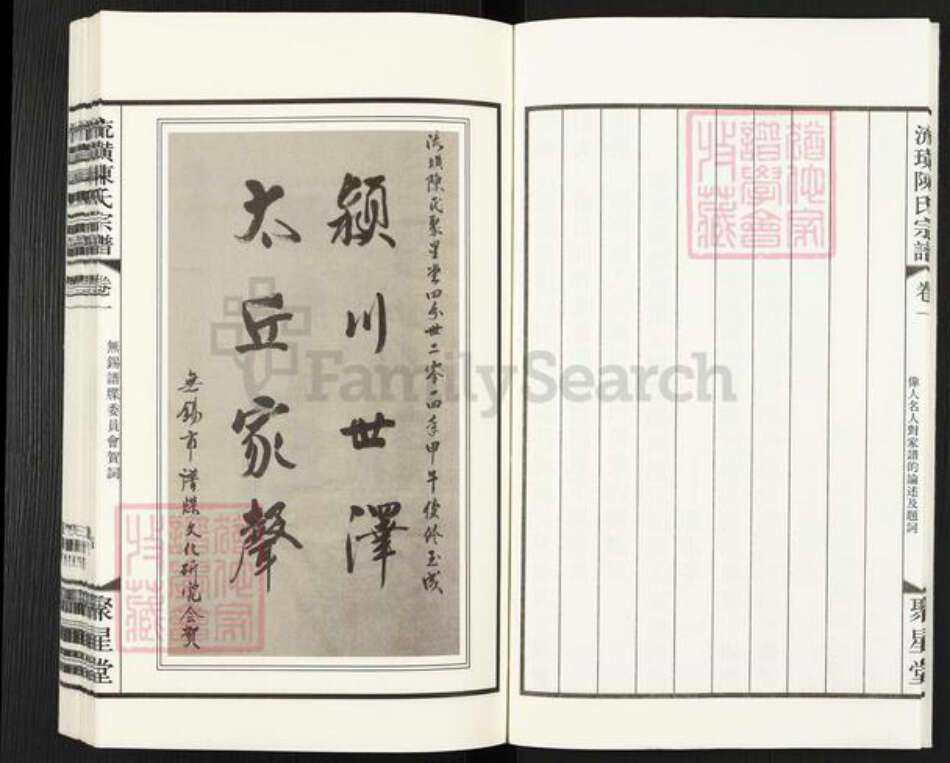 流璜陳氏宗譜
卷一
偉人名人對家譜的論述及題詞
聚星堂
流璜陳氏聚星堂四分世二零一四年甲午續修玉成
潁川世澤
太丘家聲
無錫市譜牒文化研究會賀
流璜陳氏宗譜
卷一
無錫譜牒委員會賀詞
聚星堂
FamilySearch